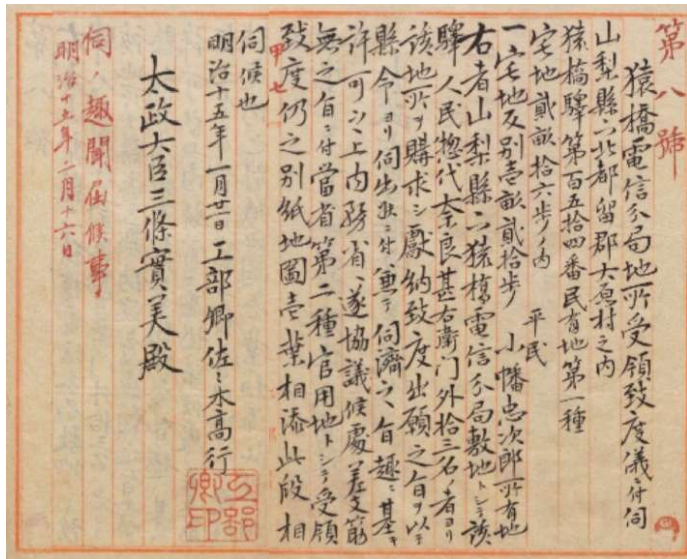 第八號
猿橋電信分局地所受領致度儀ニ付伺
山梨縣下北都留郡大原村之内
猿橋驛第百五拾四番民有地第一種
宅地貳畝拾六歩ノ内
平民
一宅地反別壱畝貳拾歩 小幡忠次郎所有地
右者山梨縣下猿橋電信分局敷地トシテ該
驛人民惣代奈良甚右衛门外拾三名ノ者ヨリ
該地所ヲ購求シ獻納致度出願之旨ヲ以テ
縣令ヨリ伺出候ニ付兼テ伺濟之旨趣ニ基キ
許可シ上内務省ヘ遂協議候處差支筋
無之旨ニ付當省第二種官用地トシテ受領
致度仍之別紙地圖壱葉相添此段相
甲七
伺候也
明治十五年一月廿一日 工部卿佐々木高行
工部卿印
太政大臣三條實美殿
伺ノ趣聞届候事
明治十五年二月十六日